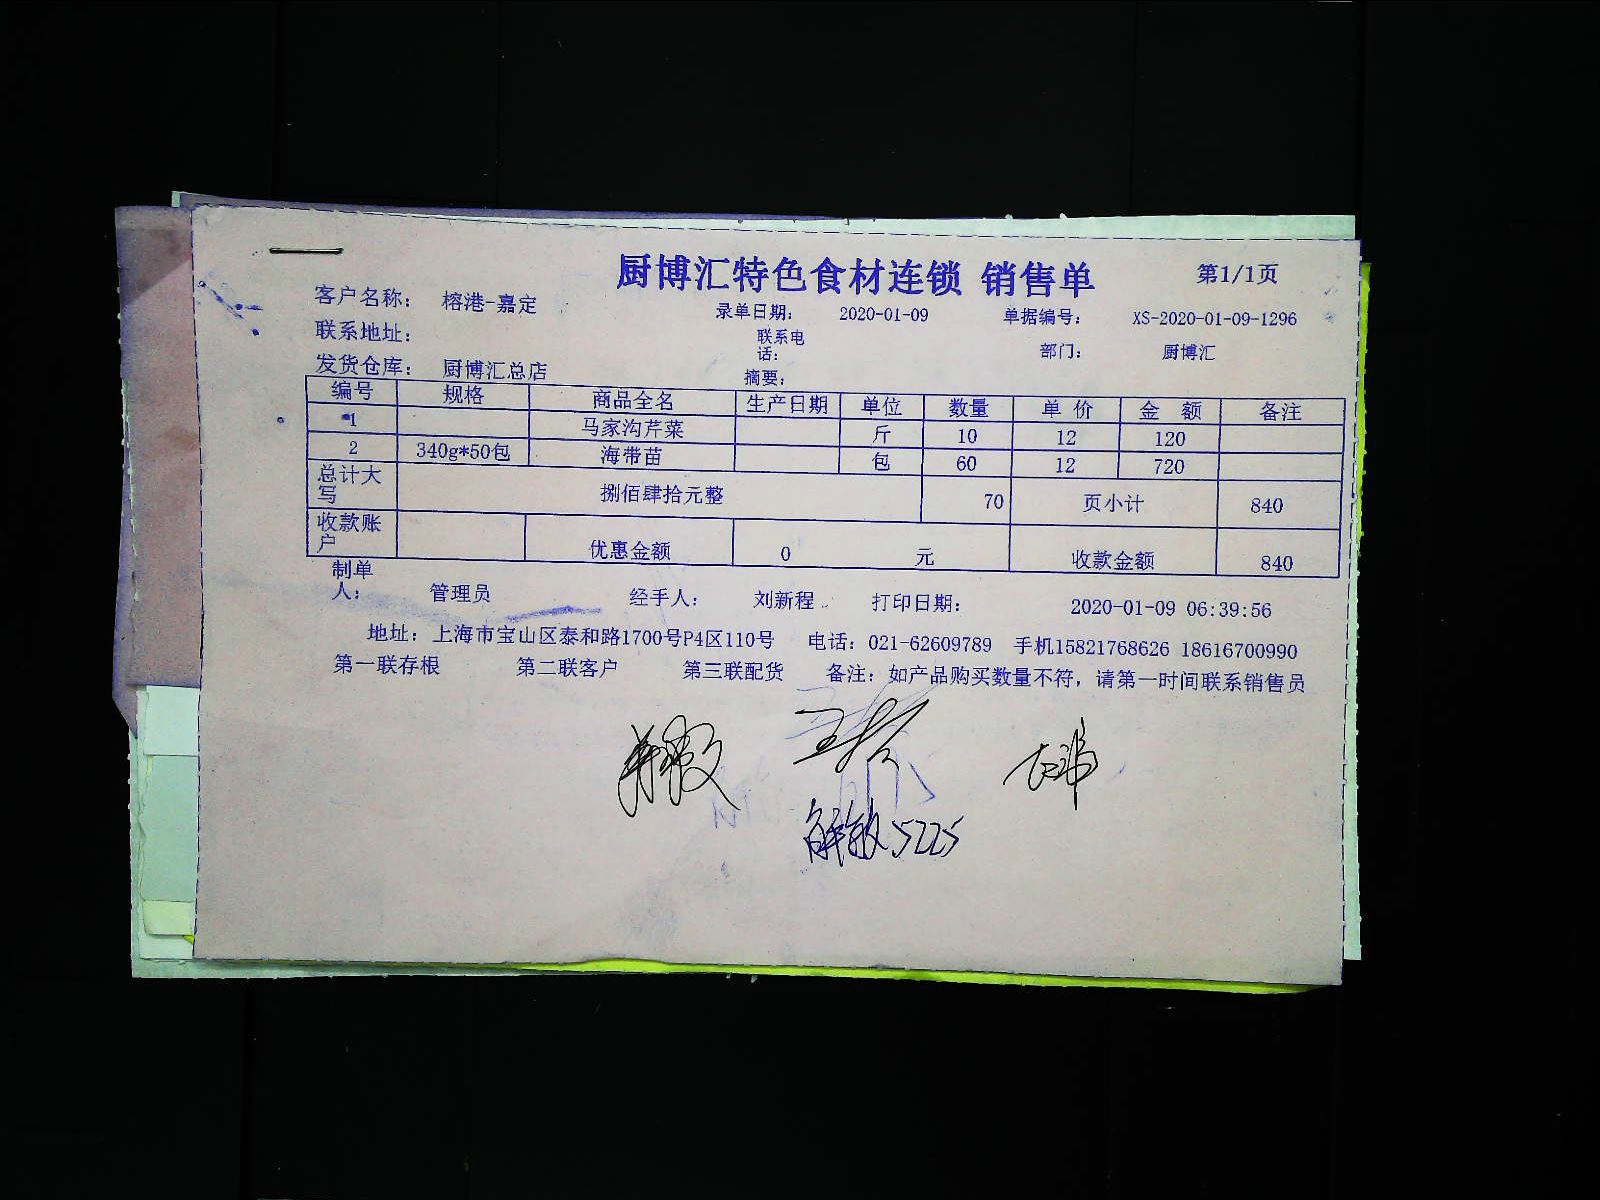 厨博汇特色食材连锁 销售单 第1/1页
客户名称： 榕港-嘉定 录单日期： 2020-01-09 单据编号： XS-2020-01-09-1296
联系地址： 联系电话： 部门： 厨博汇
发货仓库： 厨博汇总店 摘要：
编号 规格 商品全名 生产日期 单位 数量 单 价 金 额 备注
1 马家沟芹菜 斤 10 12 120
2 340g*50包 海带苗 包 60 12 720
总计大写 捌佰肆拾元整 70 页小计 840
收款账户 优惠金额 0 元 收款金额 840
制单人： 管理员 经手人： 刘新程 打印日期： 2020-01-09 06:39:56
地址：上海市宝山区泰和路1700号P4区110号 电话：021-62609789 手机15821768626 18616700990
第一联存根 第二联客户 第三联配货 备注：如产品购买数量不符，请第一时间联系销售员
解敏5225